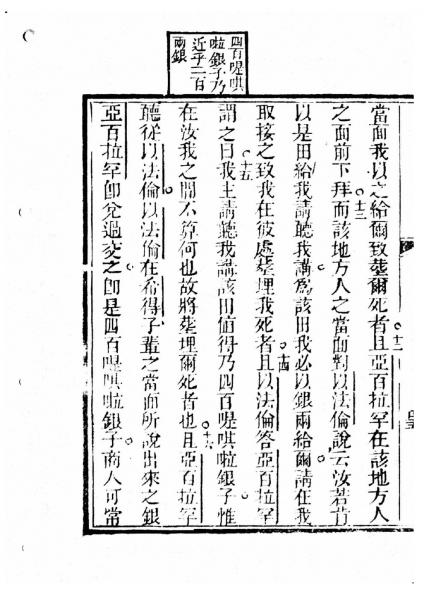 四百㖷唭
啦銀子乃
近乎二百
兩銀
當面我以之給爾致塟爾死者。十二且亞百拉罕在該地方人
之面前下拜。十三而該地方人之當面對以法倫說云汝若肯
以是田給我請聽我講爲該田我必以銀兩給爾。請在我
取接之致我在彼處塟埋我死者。十四且以法倫答亞百拉罕
謂之曰。十五我主請聽我講該田値得乃四百㖷唭啦銀子。惟
在汝我之間不算何也故將塟埋爾死者也。十六且亞百拉罕
聽從以法倫。以法倫在希得子輩之當面所說出來之銀
亞百拉罕卽兌過交之。卽是四百㖷唭啦銀子。商人可常